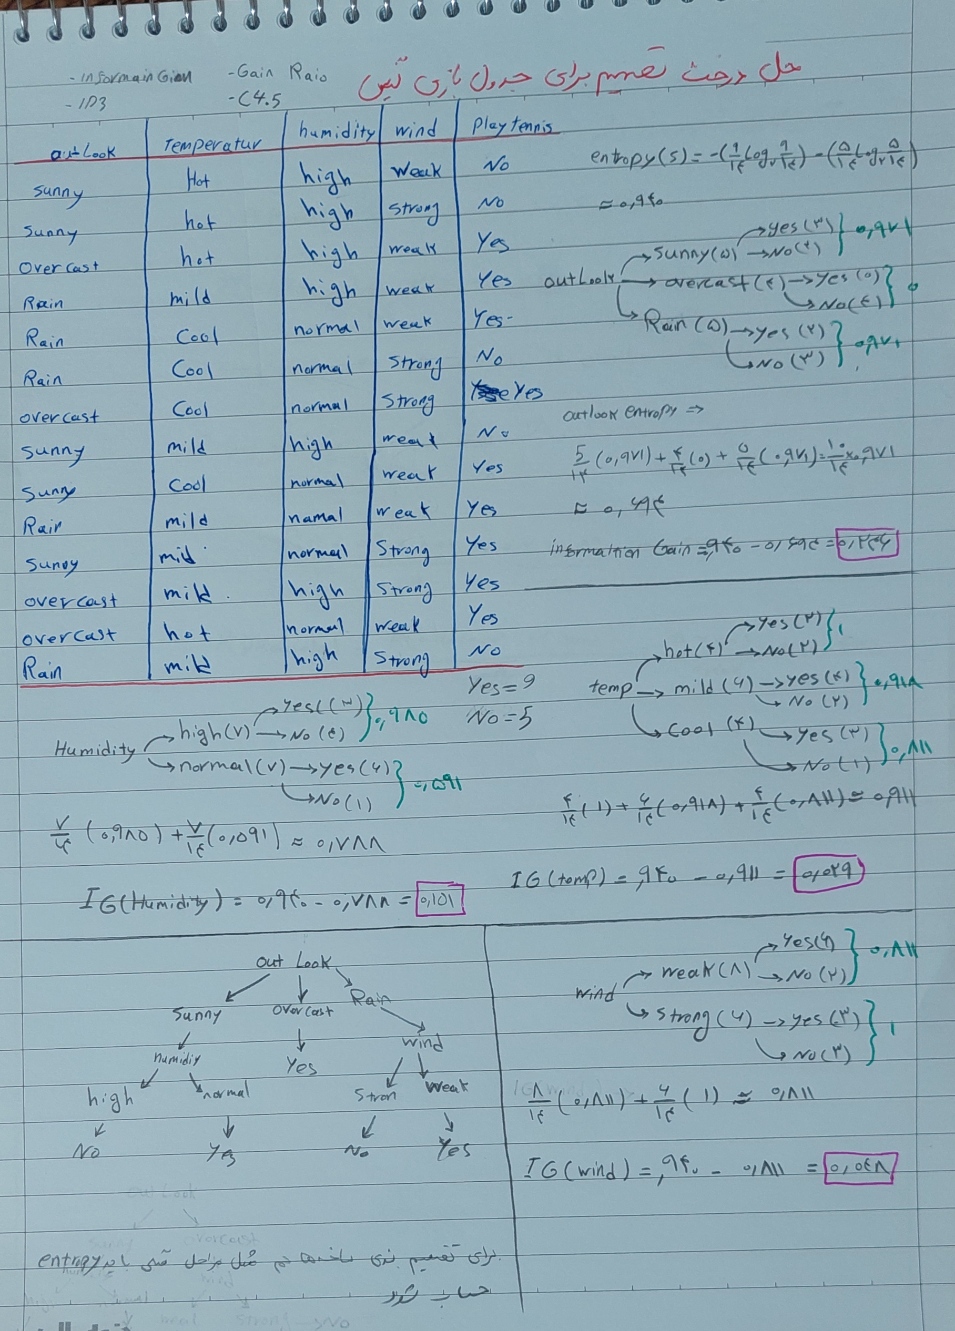 حل درخت تصمیم برای جدول بازی تنیس
- Informain Gion - Gain Raio
- ID3 - C4.5
outLook Temperatur humidity wind Play tennis
Sunny Hot high Weak No
Sunny hot high Strong No
Overcast hot high weak Yes
Rain mild high weak Yes
Rain Cool normal weak Yes
Rain Cool normal Strong No
overcast Cool normal Strong Yes
Sunny mild high weak No
Sunny Cool normal weak Yes
Rain mild namal weak Yes
Sunny mid normal Strong Yes
overcast mild high Strong Yes
overcast hot normal weak Yes
Rain mild high Strong No
Yes=9
No=5
entropy(s) = -(۹/۱۴ Log۲ ۹/۱۴) - (۵/۱۴ Log۲ ۵/۱۴)
≈ ۰,۹۴۰
outlook
Sunny(۵) → yes(۲) → No(۳) ۰,۹۷۱
overcast(۴) → yes(۰) → No(۴) ۰
Rain(۵) → yes(۲) → No(۳) ۰,۹۷۱
outlook entropy ⇒
5/۱۴ (۰,۹۷۱) + ۴/۱۴ (۰) + ۵/۱۴ (۰,۹۷۱) = ۱۰/۱۴ × ۰,۹۷۱
≈ ۰,۶۹۴
information Gain = ,۹۴۰ - ۰,۶۹۴ = ۰,۲۴۶
temp
hot(۴) → Yes(۲) → No(۲) ۱
mild(۶) → yes(۴) → No(۲) ۰,۹۱۸
Cool(۴) → yes(۳) → No(۱) ۰,۸۱۱
۴/۱۴ (۱) + ۶/۱۴ (۰,۹۱۸) + ۴/۱۴ (۰,۸۱۱) ≈ ۰,۹۱۱
IG(temp) = ,۹۴۰ - ۰,۹۱۱ = ۰,۰۲۹
Humidity
high(۷) → yes(۳) → No(۴) ۰,۹۸۵
normal(۷) → yes(۶) → No(۱) ۰,۵۹۱
۷/۱۴ (۰,۹۸۵) + ۷/۱۴ (۰,۵۹۱) ≈ ۰,۷۸۸
IG(Humidity) = ۰,۹۴۰ - ۰,۷۸۸ = ۰,۱۵۱
wind
weak(۸) → Yes(۶) → No(۲) ۰,۸۱۱
strong(۶) → yes(۳) → No(۳) ۱
۸/۱۴ (۰,۸۱۱) + ۶/۱۴ (۱) ≈ ۰,۸۱۱
IG(wind) = ,۹۴۰ - ۰,۸۱۱ = ۰,۰۴۸
out Look
Sunny overcast Rain
humidiy Yes wind
high normal Stron weak
No Yes No Yes
برای تقسیم بندی شاخه‌ها هم مثل مراحل قبلی باید entropy
حساب شود